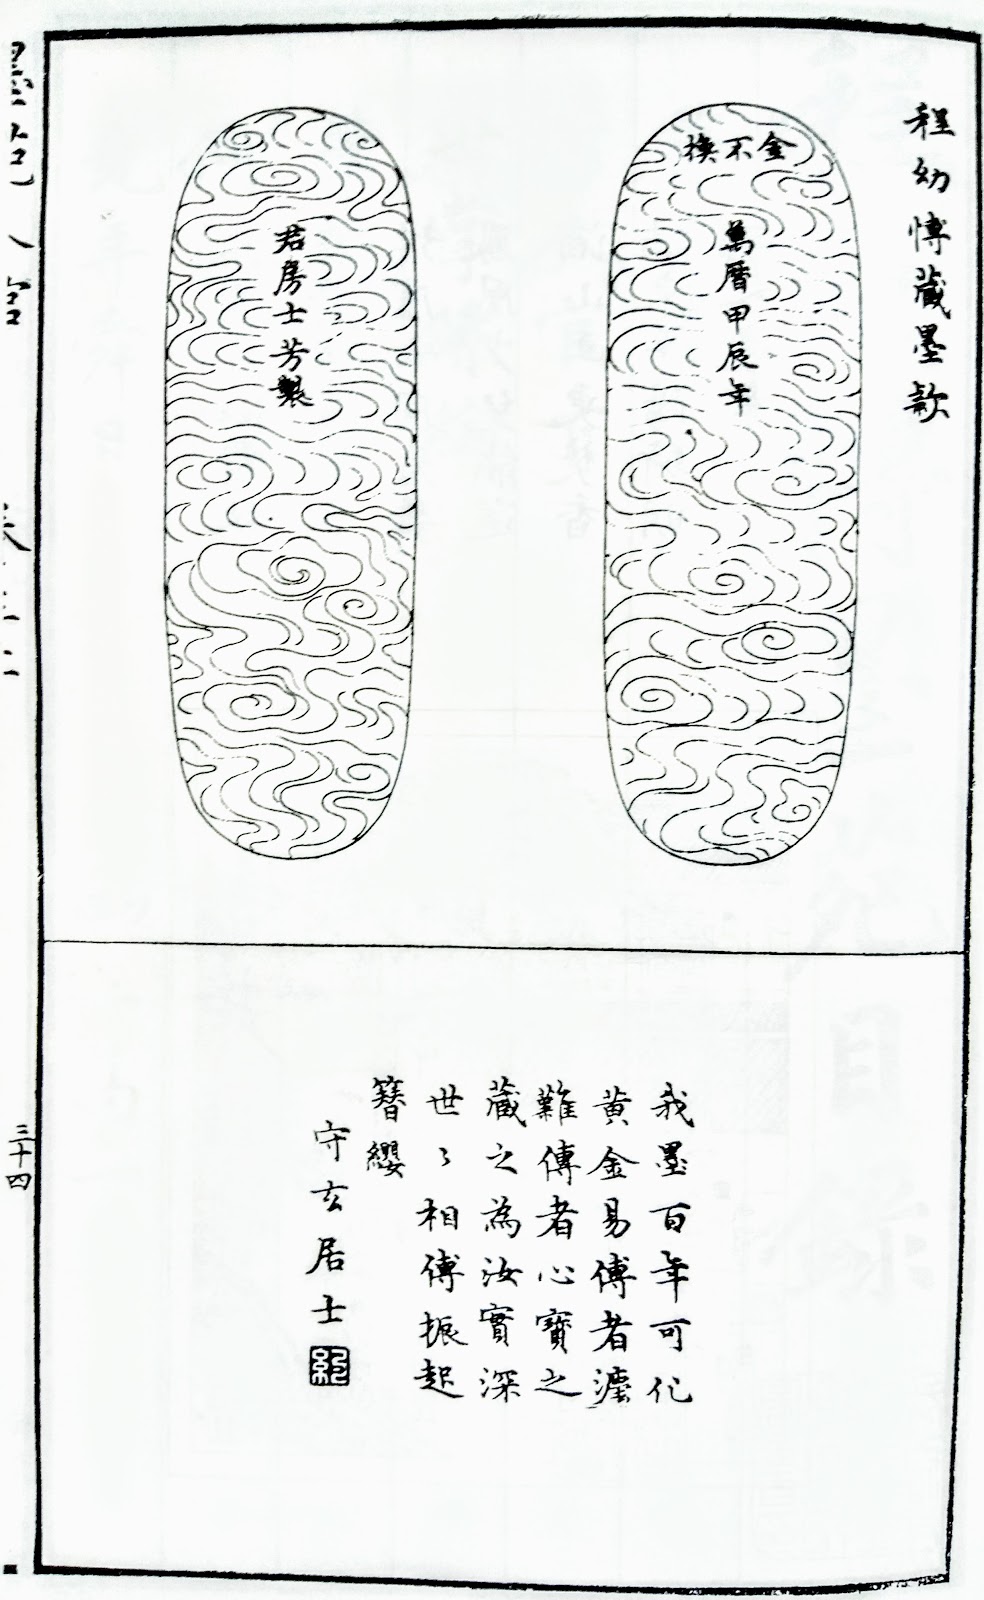 程幼愽藏墨款
金不換
萬曆甲辰年
君房士芳製
我墨百年可化
黃金易傳者灋
難傳者心寶之
藏之為汝實深
世々相傳振起
簪纓
守玄居士
三十四